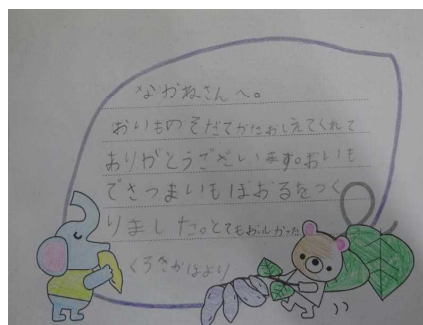 なかねさんへ。
おいものそだてかたおしえてくれて
ありがとうございます。おいも
でさつまいもぼおるをつく
りました。とてもおいしかった
くろさかはより